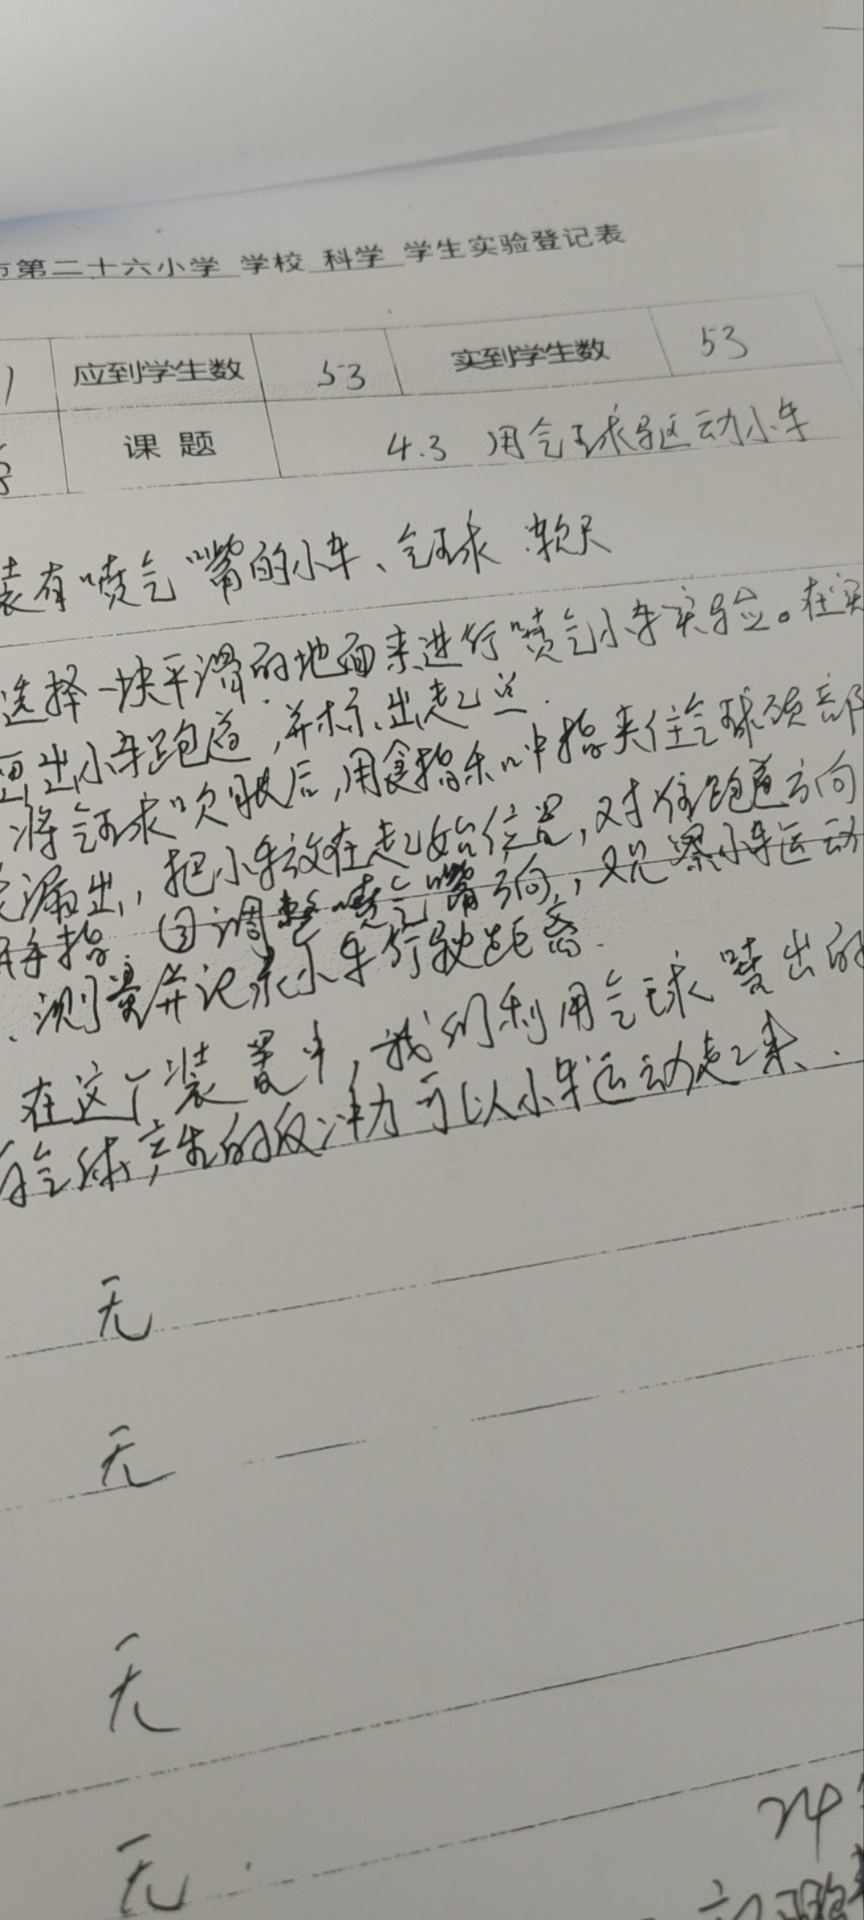 市第二十六小学 学校 科学 学生实验登记表
应到学生数 53 实到学生数 53
课题 4.3 用气球驱动小车
装有喷气嘴的小车、气球、软尺
选择一块平滑的地面来进行喷气小车实验。在实
画出小车跑道,并标出起点.
将气球吹胀后,用食指和中指夹住气球颈部
漏出,把小车放在起始位置,对准跑道方向
手指 ③调整喷气嘴方向,观察小车运动
测量并记录小车行驶距离.
在这个装置中,我们利用气球喷出的
气体产生的反冲力可以小车运动起来.
无
无
无
无.
24